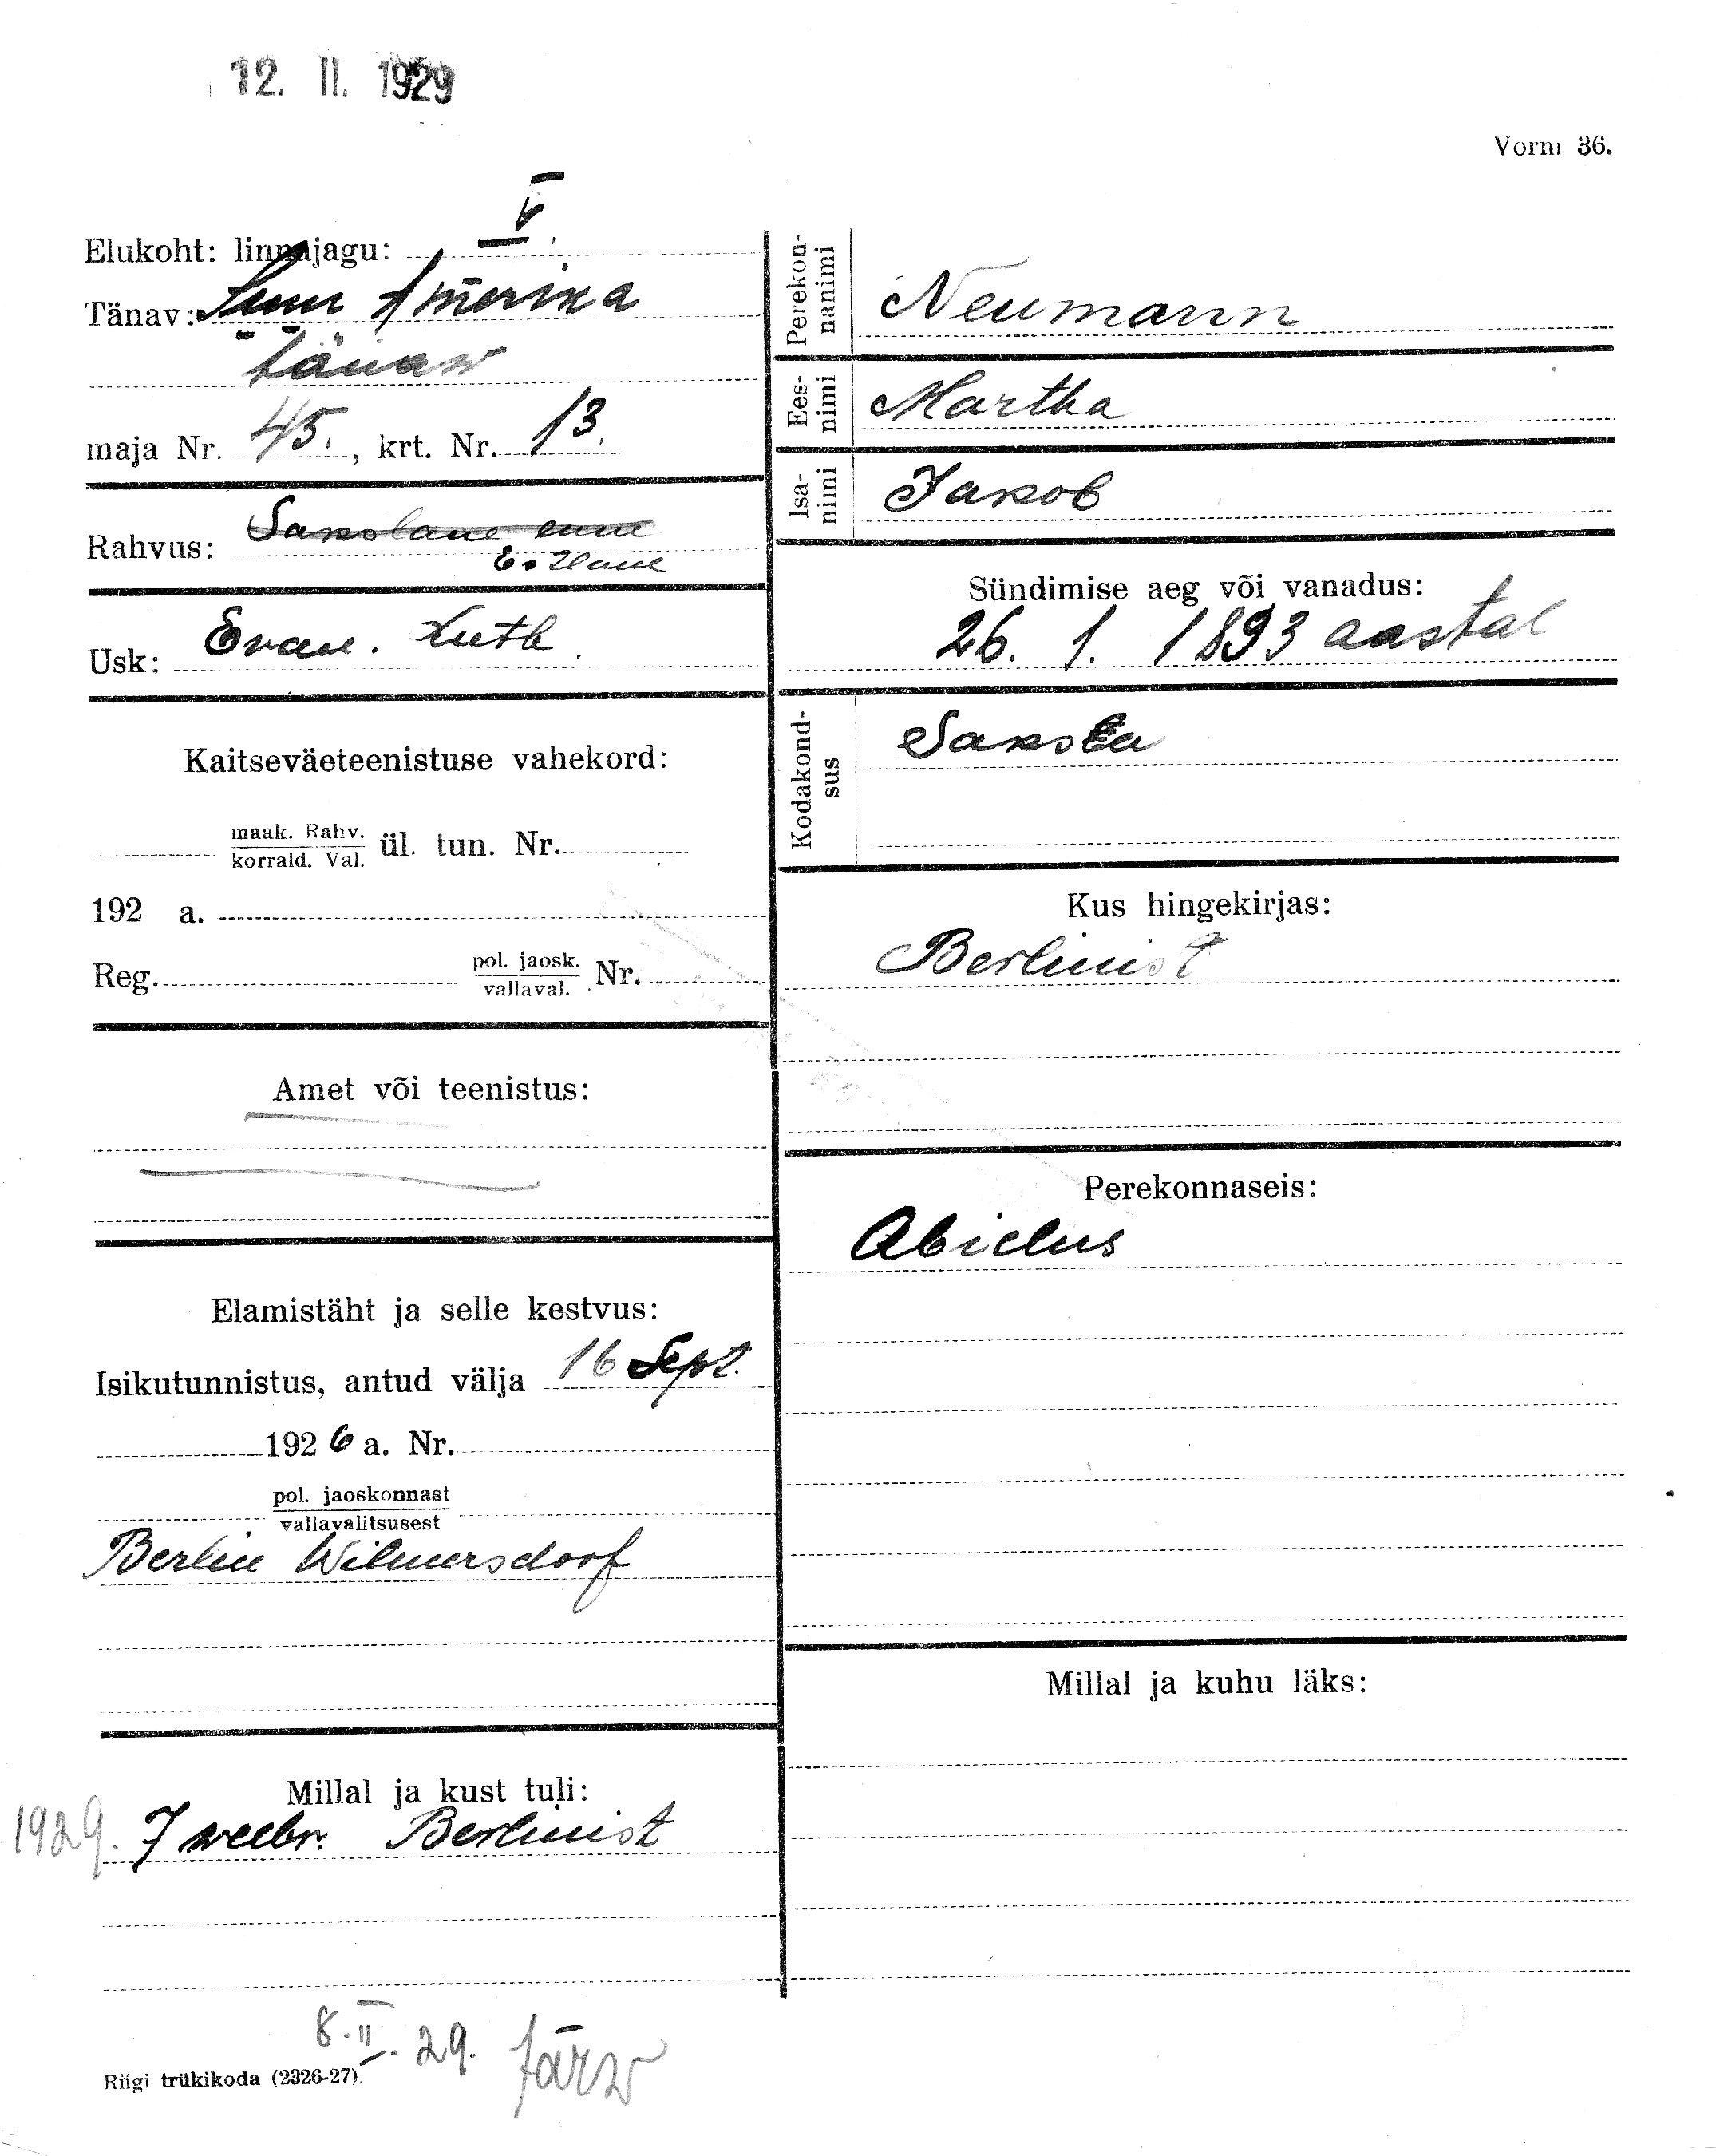 12. II. 1929
Vorm 36.
Elukoht: linnajagu: V
Tänav: Suur Amerika
tänaw
maja Nr. 45., krt. Nr. 13.
Rahvus: Sakslane enne
Estlane
Usk: Evan. Luth.
Kaitseväeteenistuse vahekord:
maak. Rahv.
korrald. Val. ül. tun. Nr.
192 a.
Reg. pol. jaosk. Nr.
vallaval.
Amet või teenistus:
Elamistäht ja selle kestvus:
Isikutunnistus, antud välja 16 Sept.
1926 a. Nr.
pol. jaoskonnast
vallavalitsusest
Berlin Wilmersdorf
Millal ja kust tuli:
1929. 7 veebr. Berliinist
8. II. 29. Järw
Riigi trükikoda (2326-27).
Perekon-
nanimi Neumann
Ees-
nimi Martha
Isa-
nimi Jakob
Sündimise aeg või vanadus:
26. 1. 1893 aastal
Kodakond-
sus Saksa
Kus hingekirjas:
Berliinist
Perekonnaseis:
Abielus
Millal ja kuhu läks: